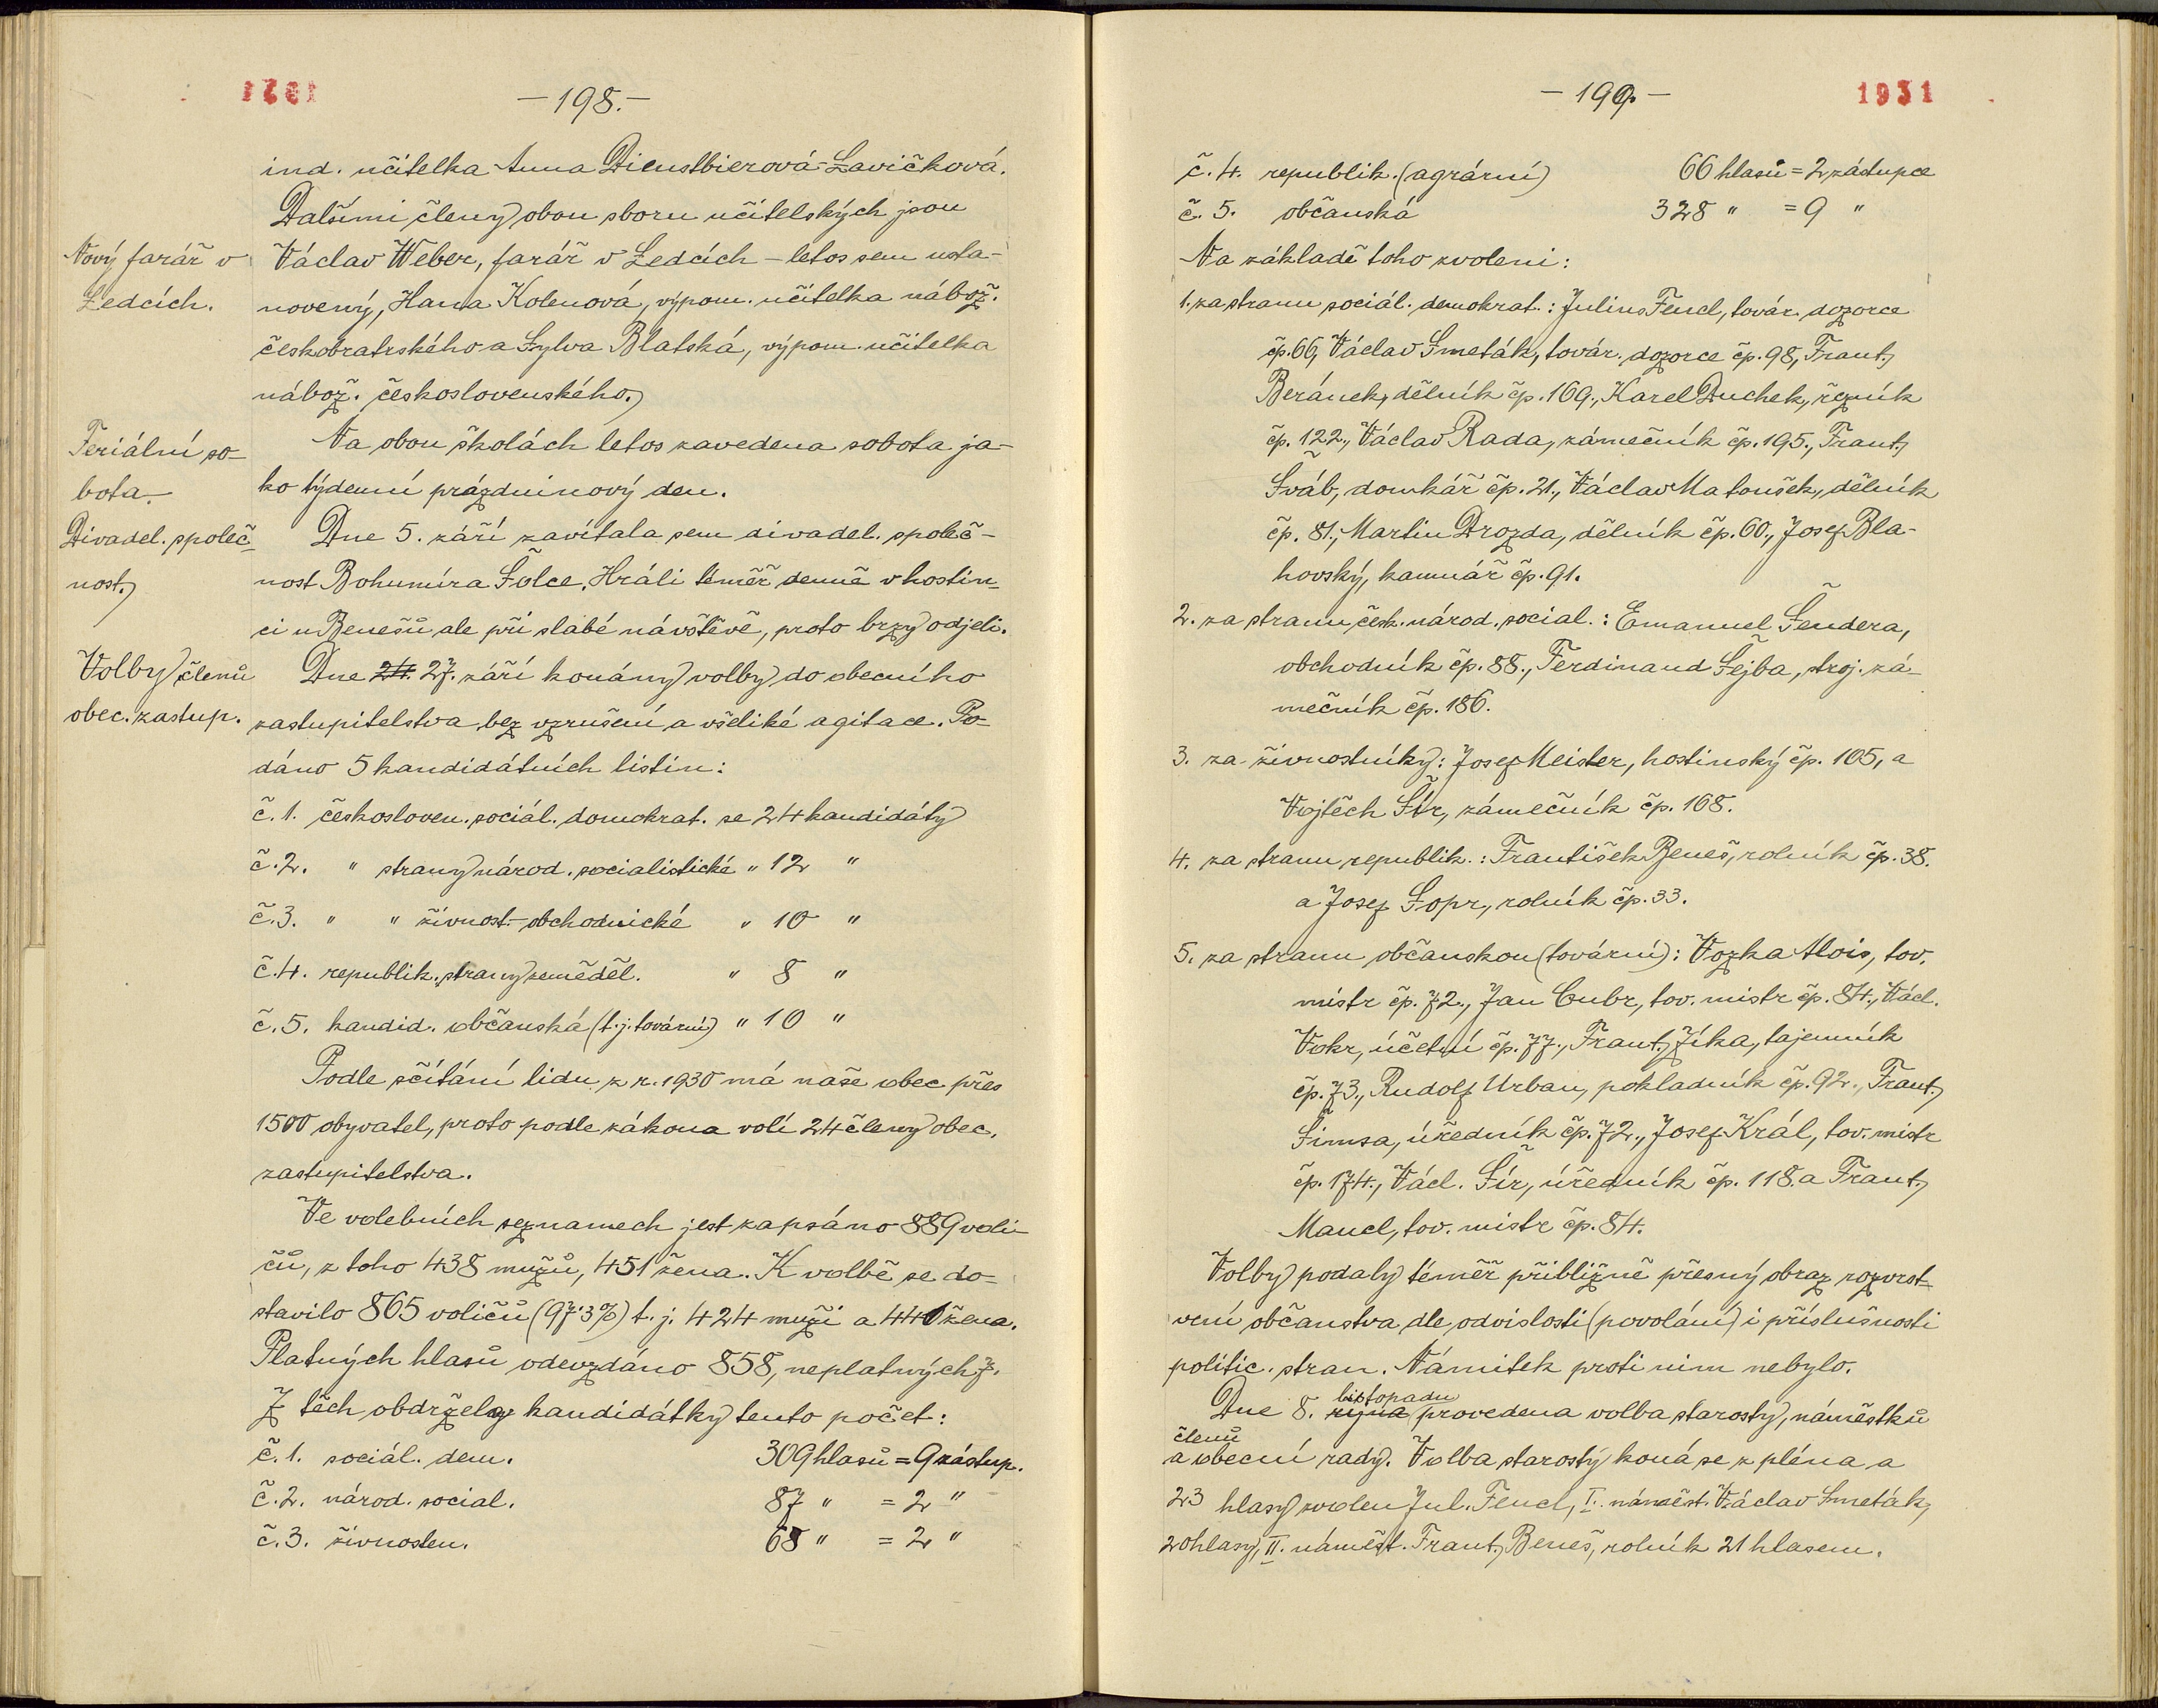 1931
— 198. —
ind. učitelka Anna Dienstbierová-Lavičková.
Dalšími členy obou sboru učitelských jsou
Nový farář v
Ledcích.
Václav Weber, farář v Ledcích – letos sem usta-
novený, Hana Kolenová, výpom. učitelka nábož.
českobratrského a Sylva Blatská, výpom. učitelka
nábož. československého.
Feriální so-
bota.
Na obou školách letos zavedena sobota ja-
ko týdenní prázdninový den.
Divadel. společ-
nost.
Dne 5. září zavítala sem divadel. společ-
nost Bohumíra Šolce. Hráli téměř denně v hostin-
ci u Benešů ale při slabé návštěvě, proto brzy odjeli.
Volby členů
obec. zastup.
Dne 24. 27. září konány volby do obecního
zastupitelstva bez vzrušení a všeliké agitace. Po-
dáno 5 kandidátních listin:
č. 1. českosloven. sociál. domokrat. se 24 kandidáty
č. 2. " strany národ. socialistické " 12 "
č. 3. " " živnost.-obchodnické " 10 "
č. 4. republik. strany zeměděl. " 8 "
č. 5. kandid. občanská (t. j. tovární) " 10 "
Podle sčítání lidu z r. 1930 má naše obec přes
1500 obyvatel, proto podle zákona volí 24 členy obec.
zastupitelstva.
Ve volebních seznamech jest zapsáno 889 voli-
čů, z toho 438 mužů, 451 žena. K volbě se do-
stavilo 865 voličů (97·3%) t. j. 424 muži a 441 žena.
Platných hlasů odevzdáno 858, neplatných 7.
Z těch obdržely kandidátky tento počet:
č. 1. sociál. dem. 309 hlasů = 9 zástup.
č. 2. národ. social. 87 " = 2 "
č. 3. živnosten. 68 " = 2 "
— 199. —
1931
č. 4. republik. (agrární) 66 hlasů = 2 zástupce
č. 5. občanská 328 " = 9 "
Na základě toho zvoleni:
1. za stranu sociál. demokrat.: Julius Fencl, továr. dozorce
čp. 66, Václav Smeták, továr. dozorce čp. 98, Frant.
Beránek, dělník čp. 169., Karel Duchek, řezník
čp. 122., Václav Rada, zámečník čp. 195., Frant.
Šváb, domkář čp. 21., Václav Matoušek, dělník
čp. 81., Martin Drozda, dělník čp. 60., Josef Bla-
hovský, kamnář čp. 91.
2. za stranu česk. národ. social.: Emanuel Šendera,
obchodník čp. 88., Ferdinand Šejba, stroj. zá-
mečník čp. 186.
3. za živnostníky: Josef Meister, hostinský čp. 105, a
Vojtěch Šír, zámečník čp. 168.
4. za stranu republik.: František Beneš, rolník čp. 38.
a Josef Sopr, rolník čp. 33.
5. za stranu občanskou (tovární): Vozka Alois, tov.
mistr čp. 72., Jan Cubr, tov. mistr čp. 84., Václ.
Vokr, účetní čp. 77., Frant. Jíka, tajemník
čp. 73., Rudolf Urban, pokladník čp. 92., Frant.
Šimsa, úředník čp. 72., Josef Král, tov. mistr
čp. 174., Václ. Šír, úředník čp. 118. a Frant.
Mancl, tov. mistr čp. 84.
Volby podaly téměř přibližně přesný obraz rozvrst-
vení občanstva dle odvislosti (povolání) i příslušnosti
politic. stran. Námitek proti nim nebylo.
listopadu
Dne 8. října provedena volba starosty, náměstků
členů
a obecní rady. Volba starosty koná se z pléna a
23 hlasy zvolen Jul. Fencl, I. náměst. Václav Smeták,
20 hlasy, II. náměst. Frant. Beneš, rolník 21 hlasem.